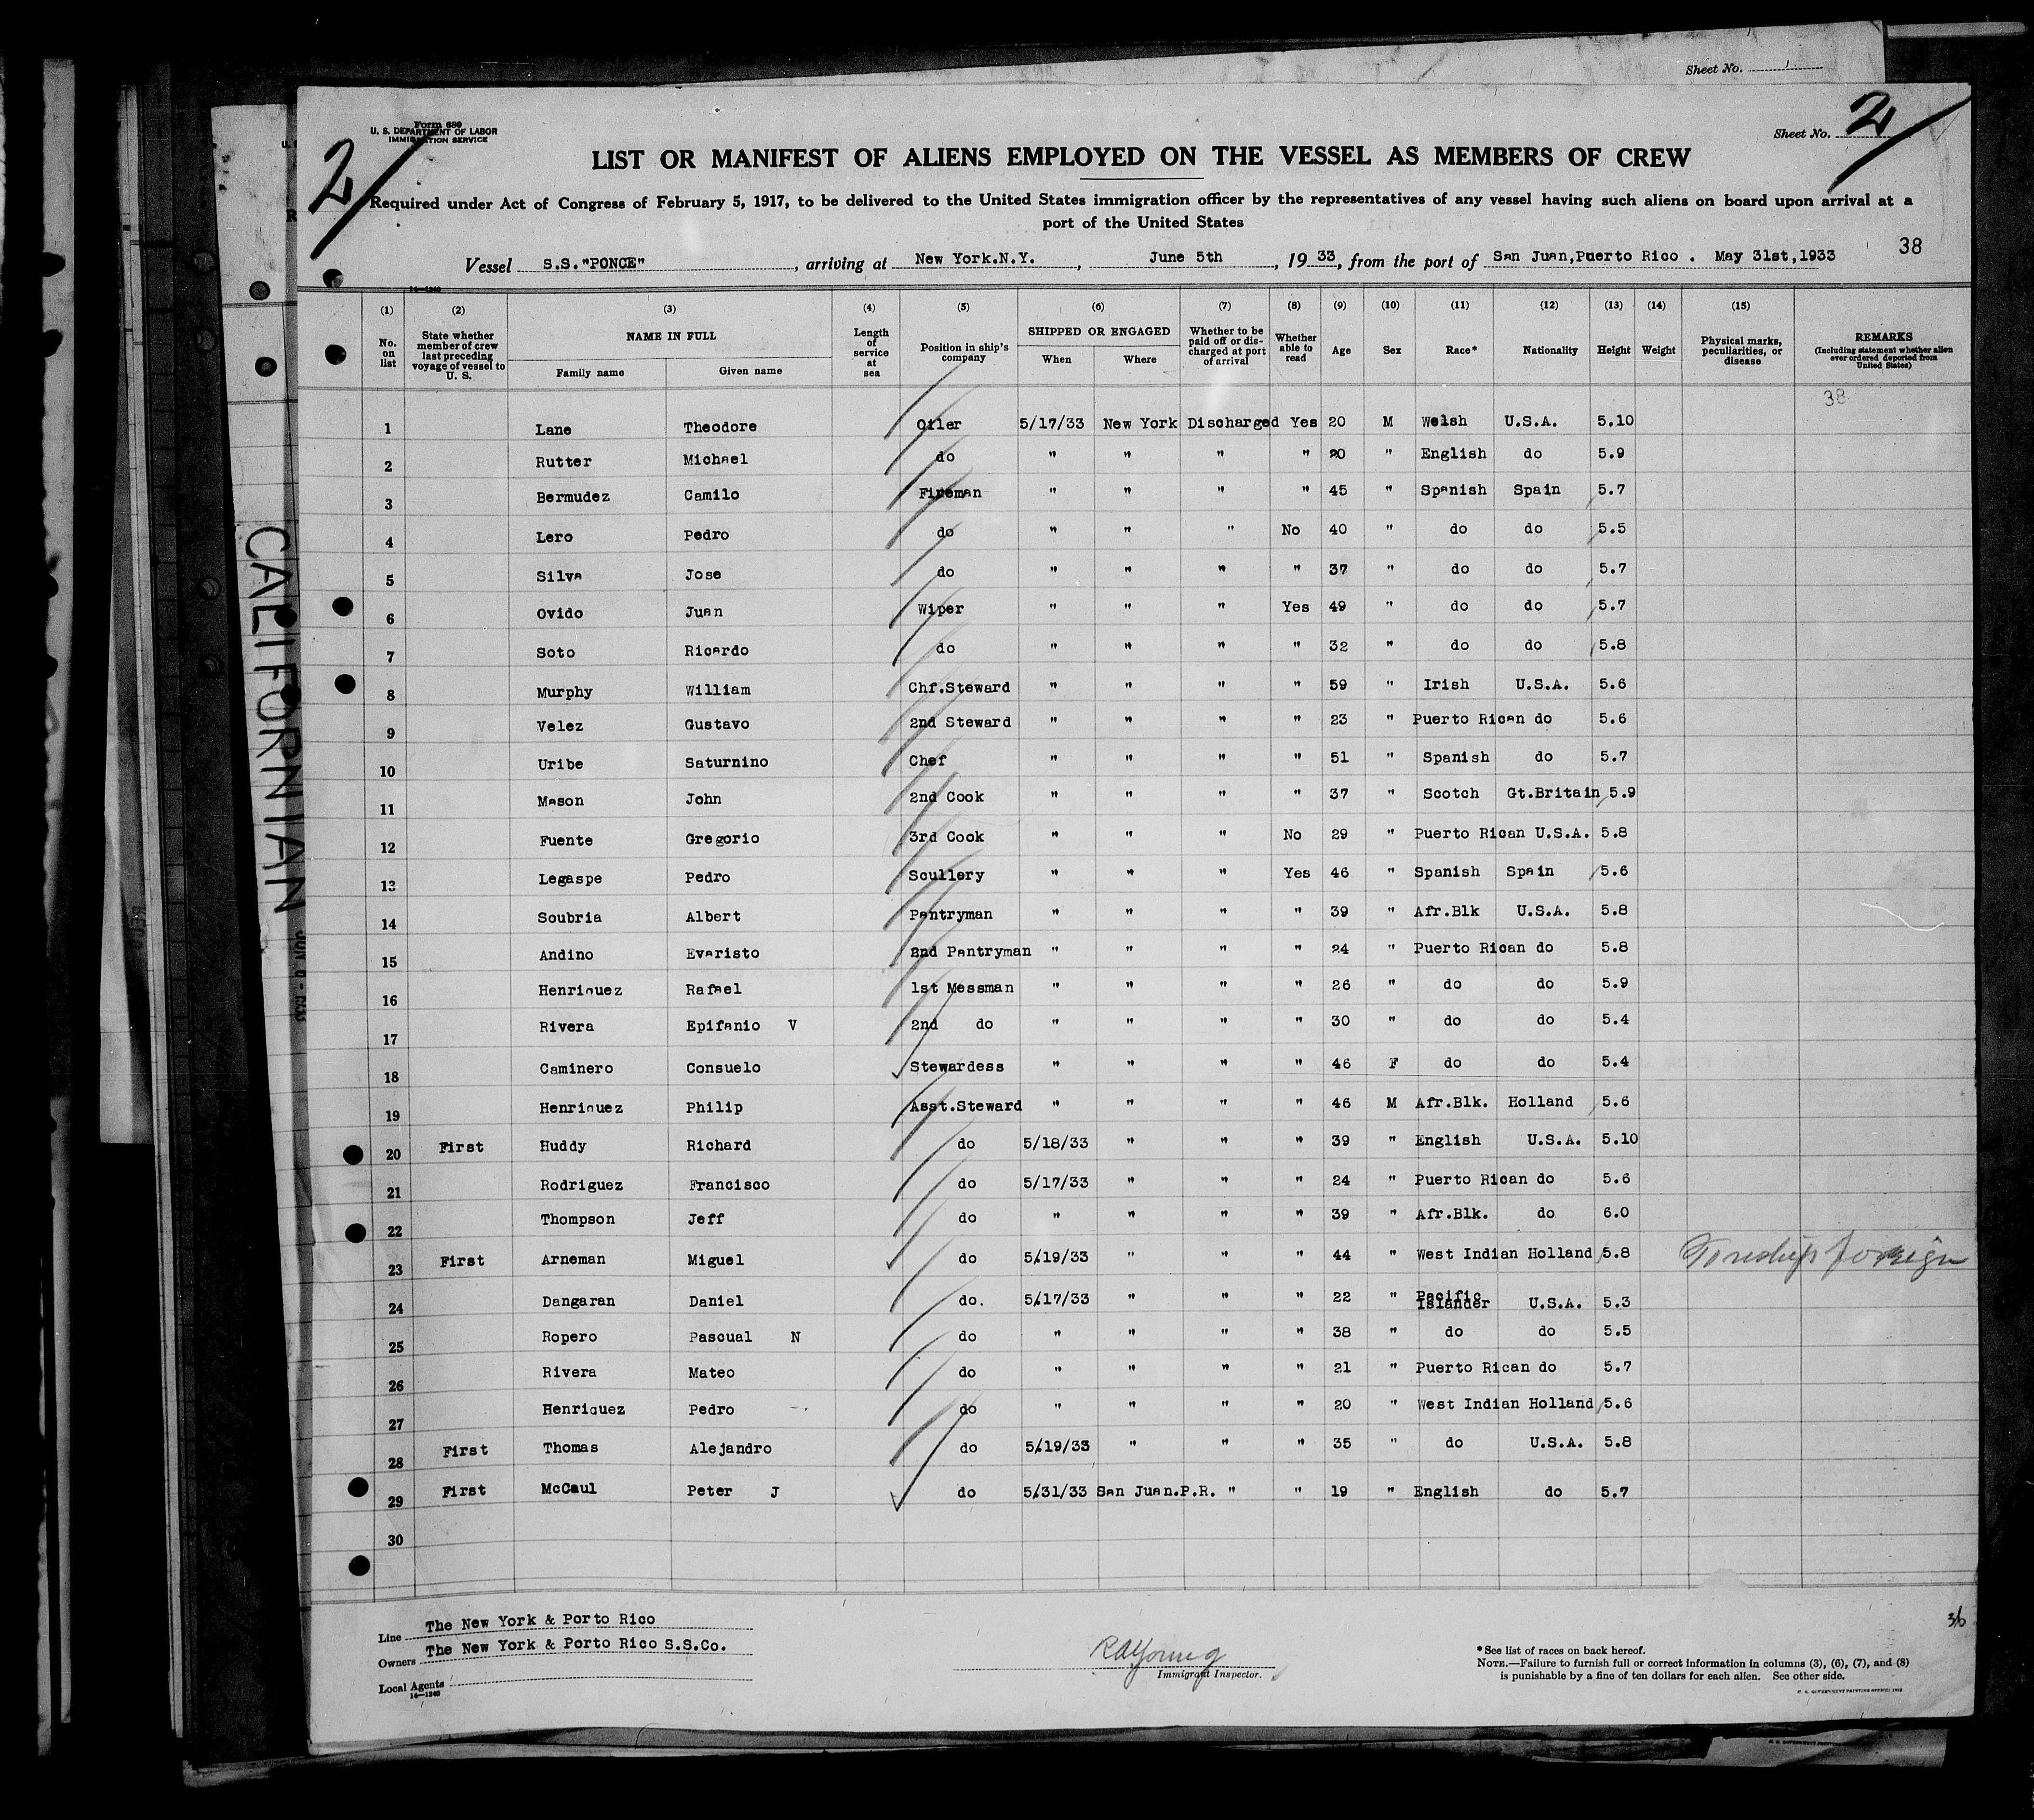 Sheet No. 1
Form 680
U. S. DEPARTMENT OF LABOR
IMMIGRATION SERVICE
Sheet No. 2
2
LIST OR MANIFEST OF ALIENS EMPLOYED ON THE VESSEL AS MEMBERS OF CREW
Required under Act of Congress of February 5, 1917, to be delivered to the United States immigration officer by the representatives of any vessel having such aliens on board upon arrival at a
port of the United States
38
Vessel S.S."PONCE", arriving at New York.N.Y., June 5th, 1933, from the port of San Juan,Puerto Rico . May 31st,1933
14—1240
(1) (2) (3) (4) (5) (6) (7) (8) (9) (10) (11) (12) (13) (14) (15)
No. on list State whether member of crew last preceding voyage of vessel to U. S. NAME IN FULL Family name Given name Length of service at sea Position in ship's company SHIPPED OR ENGAGED When Where Whether to be paid off or discharged at port of arrival Whether able to read Age Sex Race* Nationality Height Weight Physical marks, peculiarities, or disease REMARKS (Including statement whether alien ever ordered deported from United States)
38
1 Lane Theodore Oiler 5/17/33 New York Discharged Yes 20 M Welsh U.S.A. 5.10
2 Rutter Michael do " " " " 20 " English do 5.9
3 Bermudez Camilo Fireman " " " " 45 " Spanish Spain 5.7
4 Lero Pedro do " " " No 40 " do do 5.5
5 Silva Jose do " " " " 37 " do do 5.7
6 Ovido Juan Wiper " " " Yes 49 " do do 5.7
7 Soto Ricardo do " " " " 32 " do do 5.8
8 Murphy William Chf.Steward " " " " 59 " Irish U.S.A. 5.6
9 Velez Gustavo 2nd Steward " " " " 23 " Puerto Rican do 5.6
10 Uribe Saturnino Chef " " " " 51 " Spanish do 5.7
11 Mason John 2nd Cook " " " " 37 " Scotch Gt.Britain 5.9
12 Fuente Gregorio 3rd Cook " " " No 29 " Puerto Rican U.S.A. 5.8
13 Legaspe Pedro Scullery " " " Yes 46 " Spanish Spain 5.6
14 Soubria Albert Pantryman " " " " 39 " Afr.Blk U.S.A. 5.8
15 Andino Evaristo 2nd Pantryman " " " " 24 " Puerto Rican do 5.8
16 Henriquez Rafael 1st Messman " " " " 26 " do do 5.9
17 Rivera Epifanio V 2nd do " " " " 30 " do do 5.4
18 Caminero Consuelo Stewardess " " " " 46 F do do 5.4
19 Henriquez Philip Asst.Steward " " " " 46 M Afr.Blk. Holland 5.6
20 First Huddy Richard do 5/18/33 " " " 39 " English U.S.A. 5.10
21 Rodriguez Francisco do 5/17/33 " " " 24 " Puerto Rican do 5.6
22 Thompson Jeff do " " " " 39 " Afr.Blk. do 6.0
23 First Arneman Miguel do 5/19/33 " " " 44 " West Indian Holland 5.8 foreign
24 Dangaran Daniel do. 5/17/33 " " " 22 " Pacific Islander U.S.A. 5.3
25 Ropero Pascual N do " " " " 38 " do do 5.5
26 Rivera Mateo do " " " " 21 " Puerto Rican do 5.7
27 Henriquez Pedro do " " " " 20 " West Indian Holland 5.6
28 First Thomas Alejandro do 5/19/33 " " " 35 " do U.S.A. 5.8
29 First McCaul Peter J do 5/31/33 San Juan.P.R. " " 19 " English do 5.7
30
Line The New York & Porto Rico
Owners The New York & Porto Rico S.S.Co.
Local Agents
14—1240
RAYoung
Immigrant Inspector.
36
*See list of races on back hereof.
NOTE.—Failure to furnish full or correct information in columns (3), (6), (7), and (8)
is punishable by a fine of ten dollars for each alien. See other side.
CALIFORNIAN